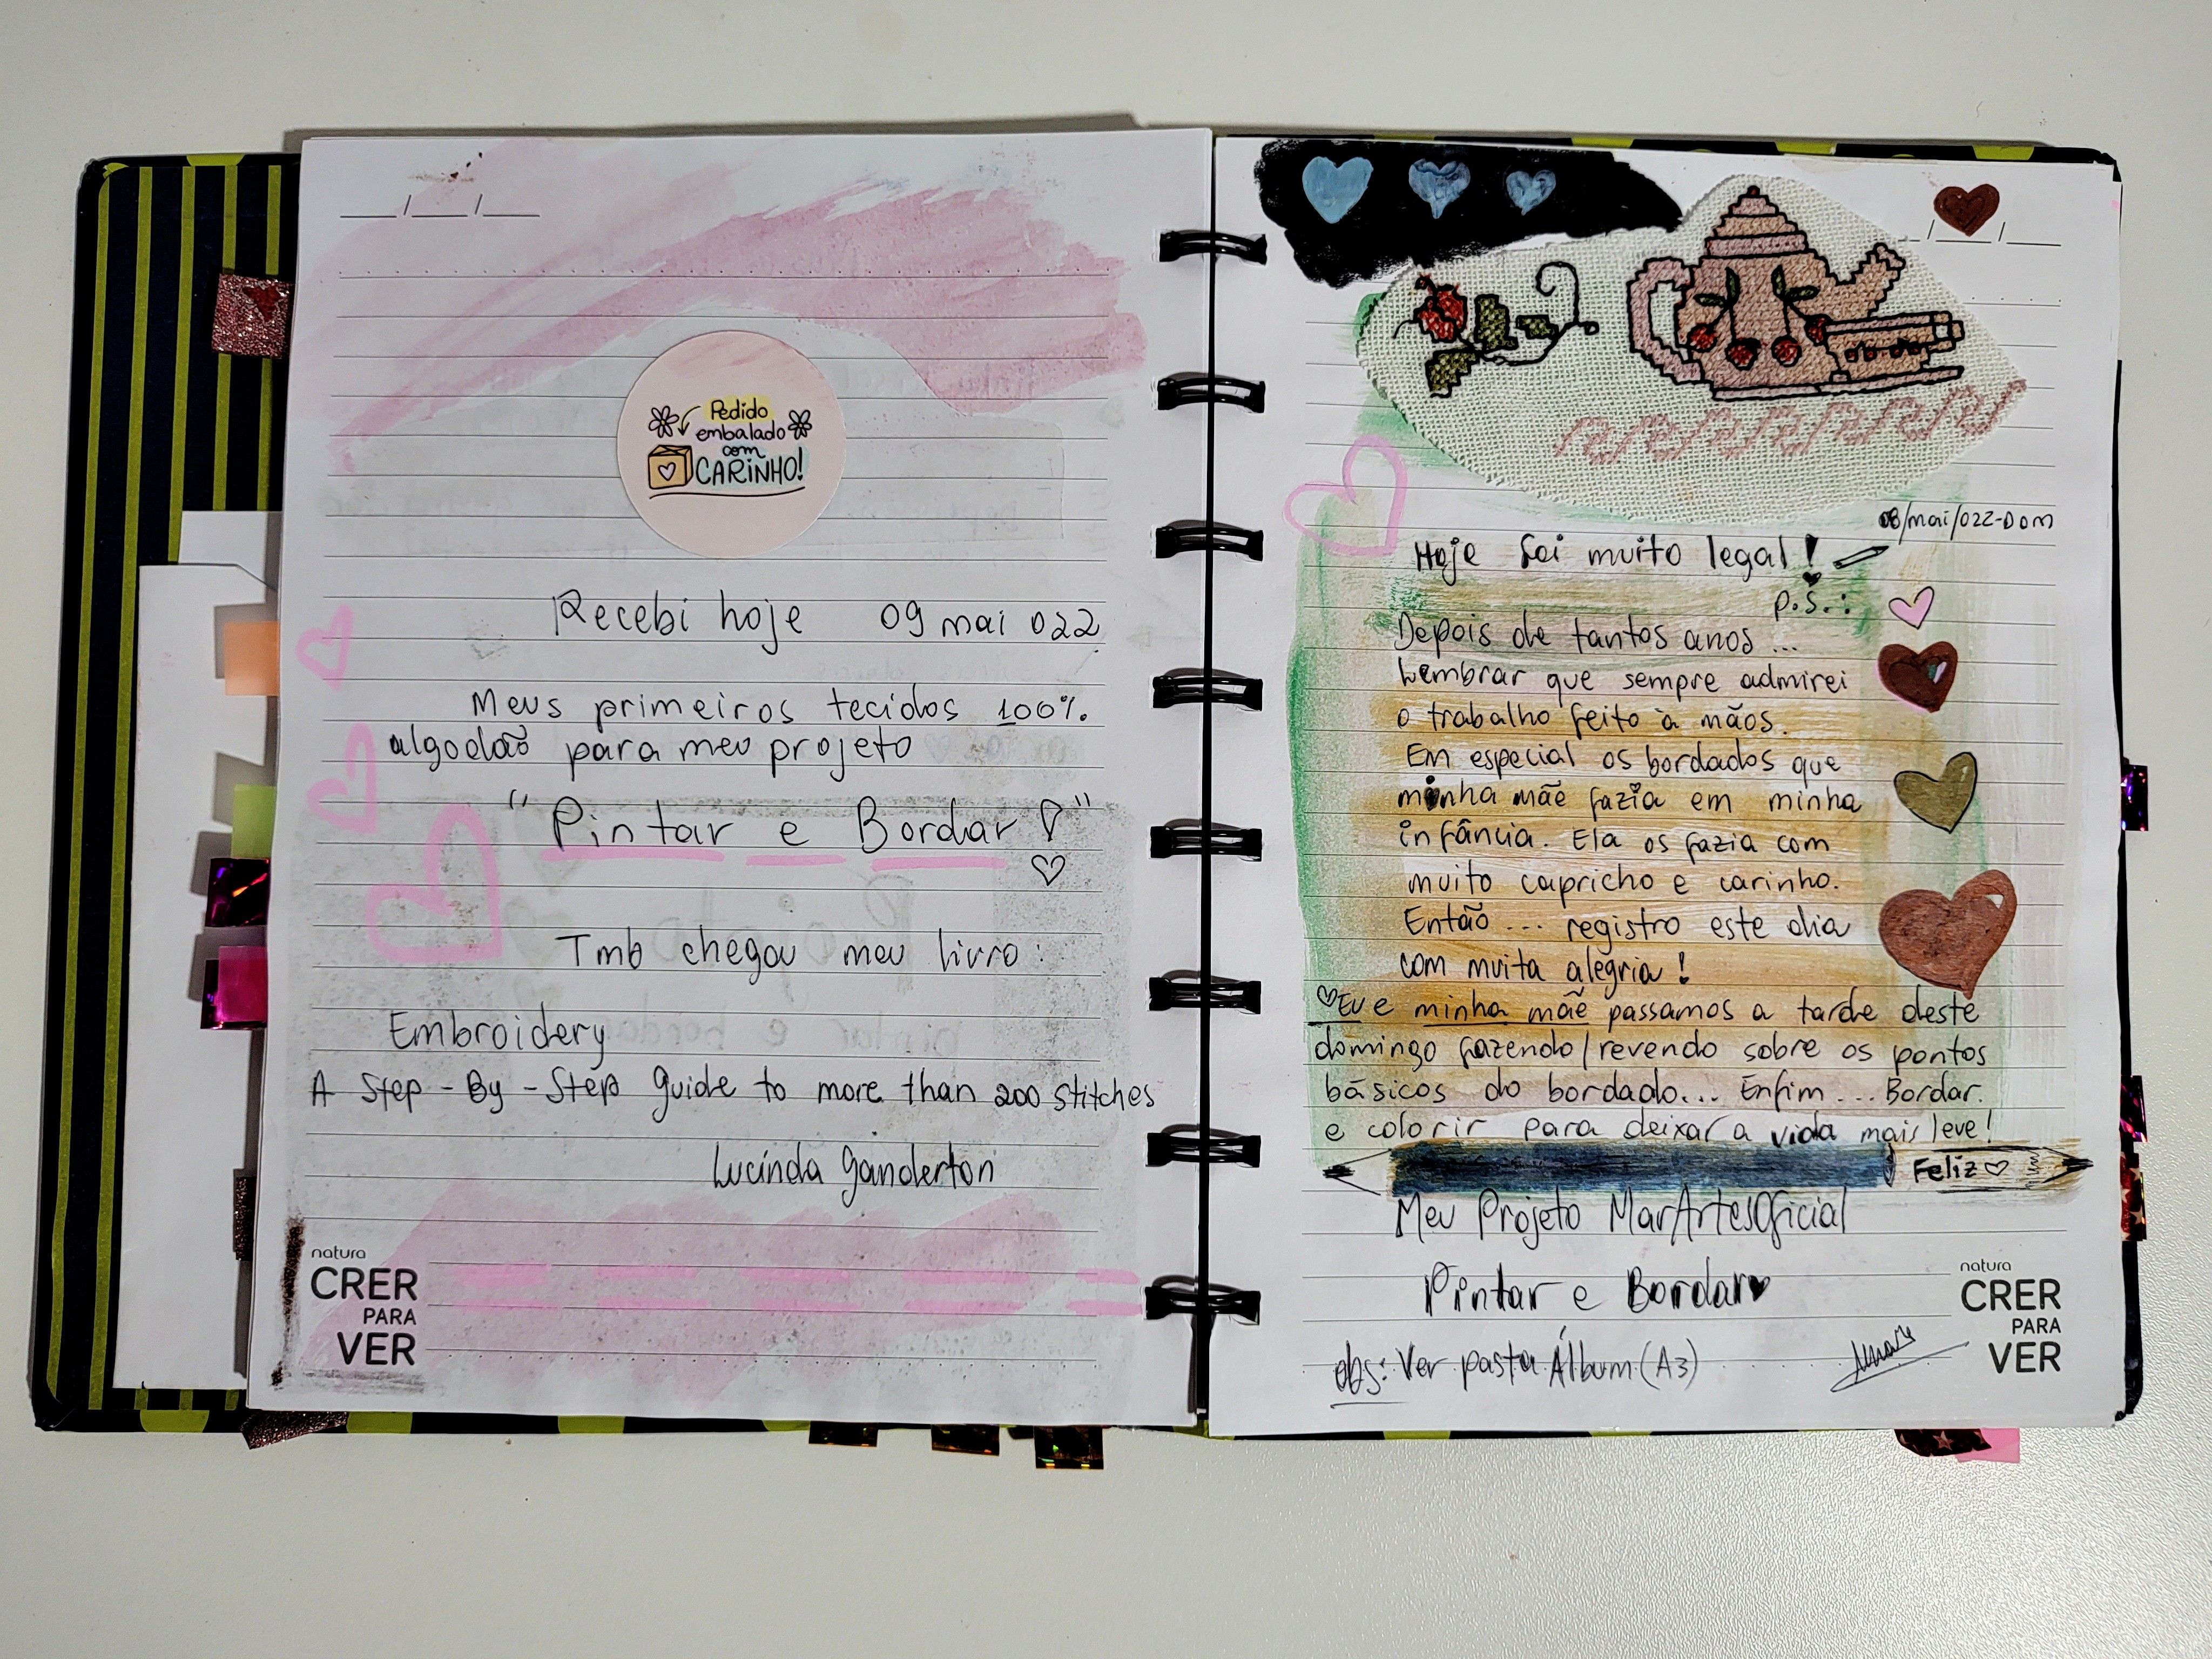 Pedido
embalado
com
CARINHO!
Recebi hoje 09 mai 022
Meus primeiros tecidos 100%
algodão para meu projeto
"Pintar e Bordar"
Tmb chegou meu livro:
Embroidery
A Step-By-Step guide to more than 200 stitches
Lucinda Ganderton
natura
CRER
PARA
VER
08/mai/022-Dom
Hoje foi muito legal!
P.S.:
Depois de tantos anos...
Lembrar que sempre admirei
o trabalho feito à mãos.
Em especial os bordados que
minha mãe fazia em minha
infância. Ela os fazia com
muito capricho e carinho.
Então... registro este dia
com muita alegria!
Eu e minha mãe passamos a tarde deste
domingo fazendo/revendo sobre os pontos
básicos do bordado... Enfim... Bordar.
e colorir para deixar a vida mais leve!
Feliz
Meu Projeto MarArtesOficial
Pintar e Bordar
obs: Ver pasta Álbum (A3)
natura
CRER
PARA
VER